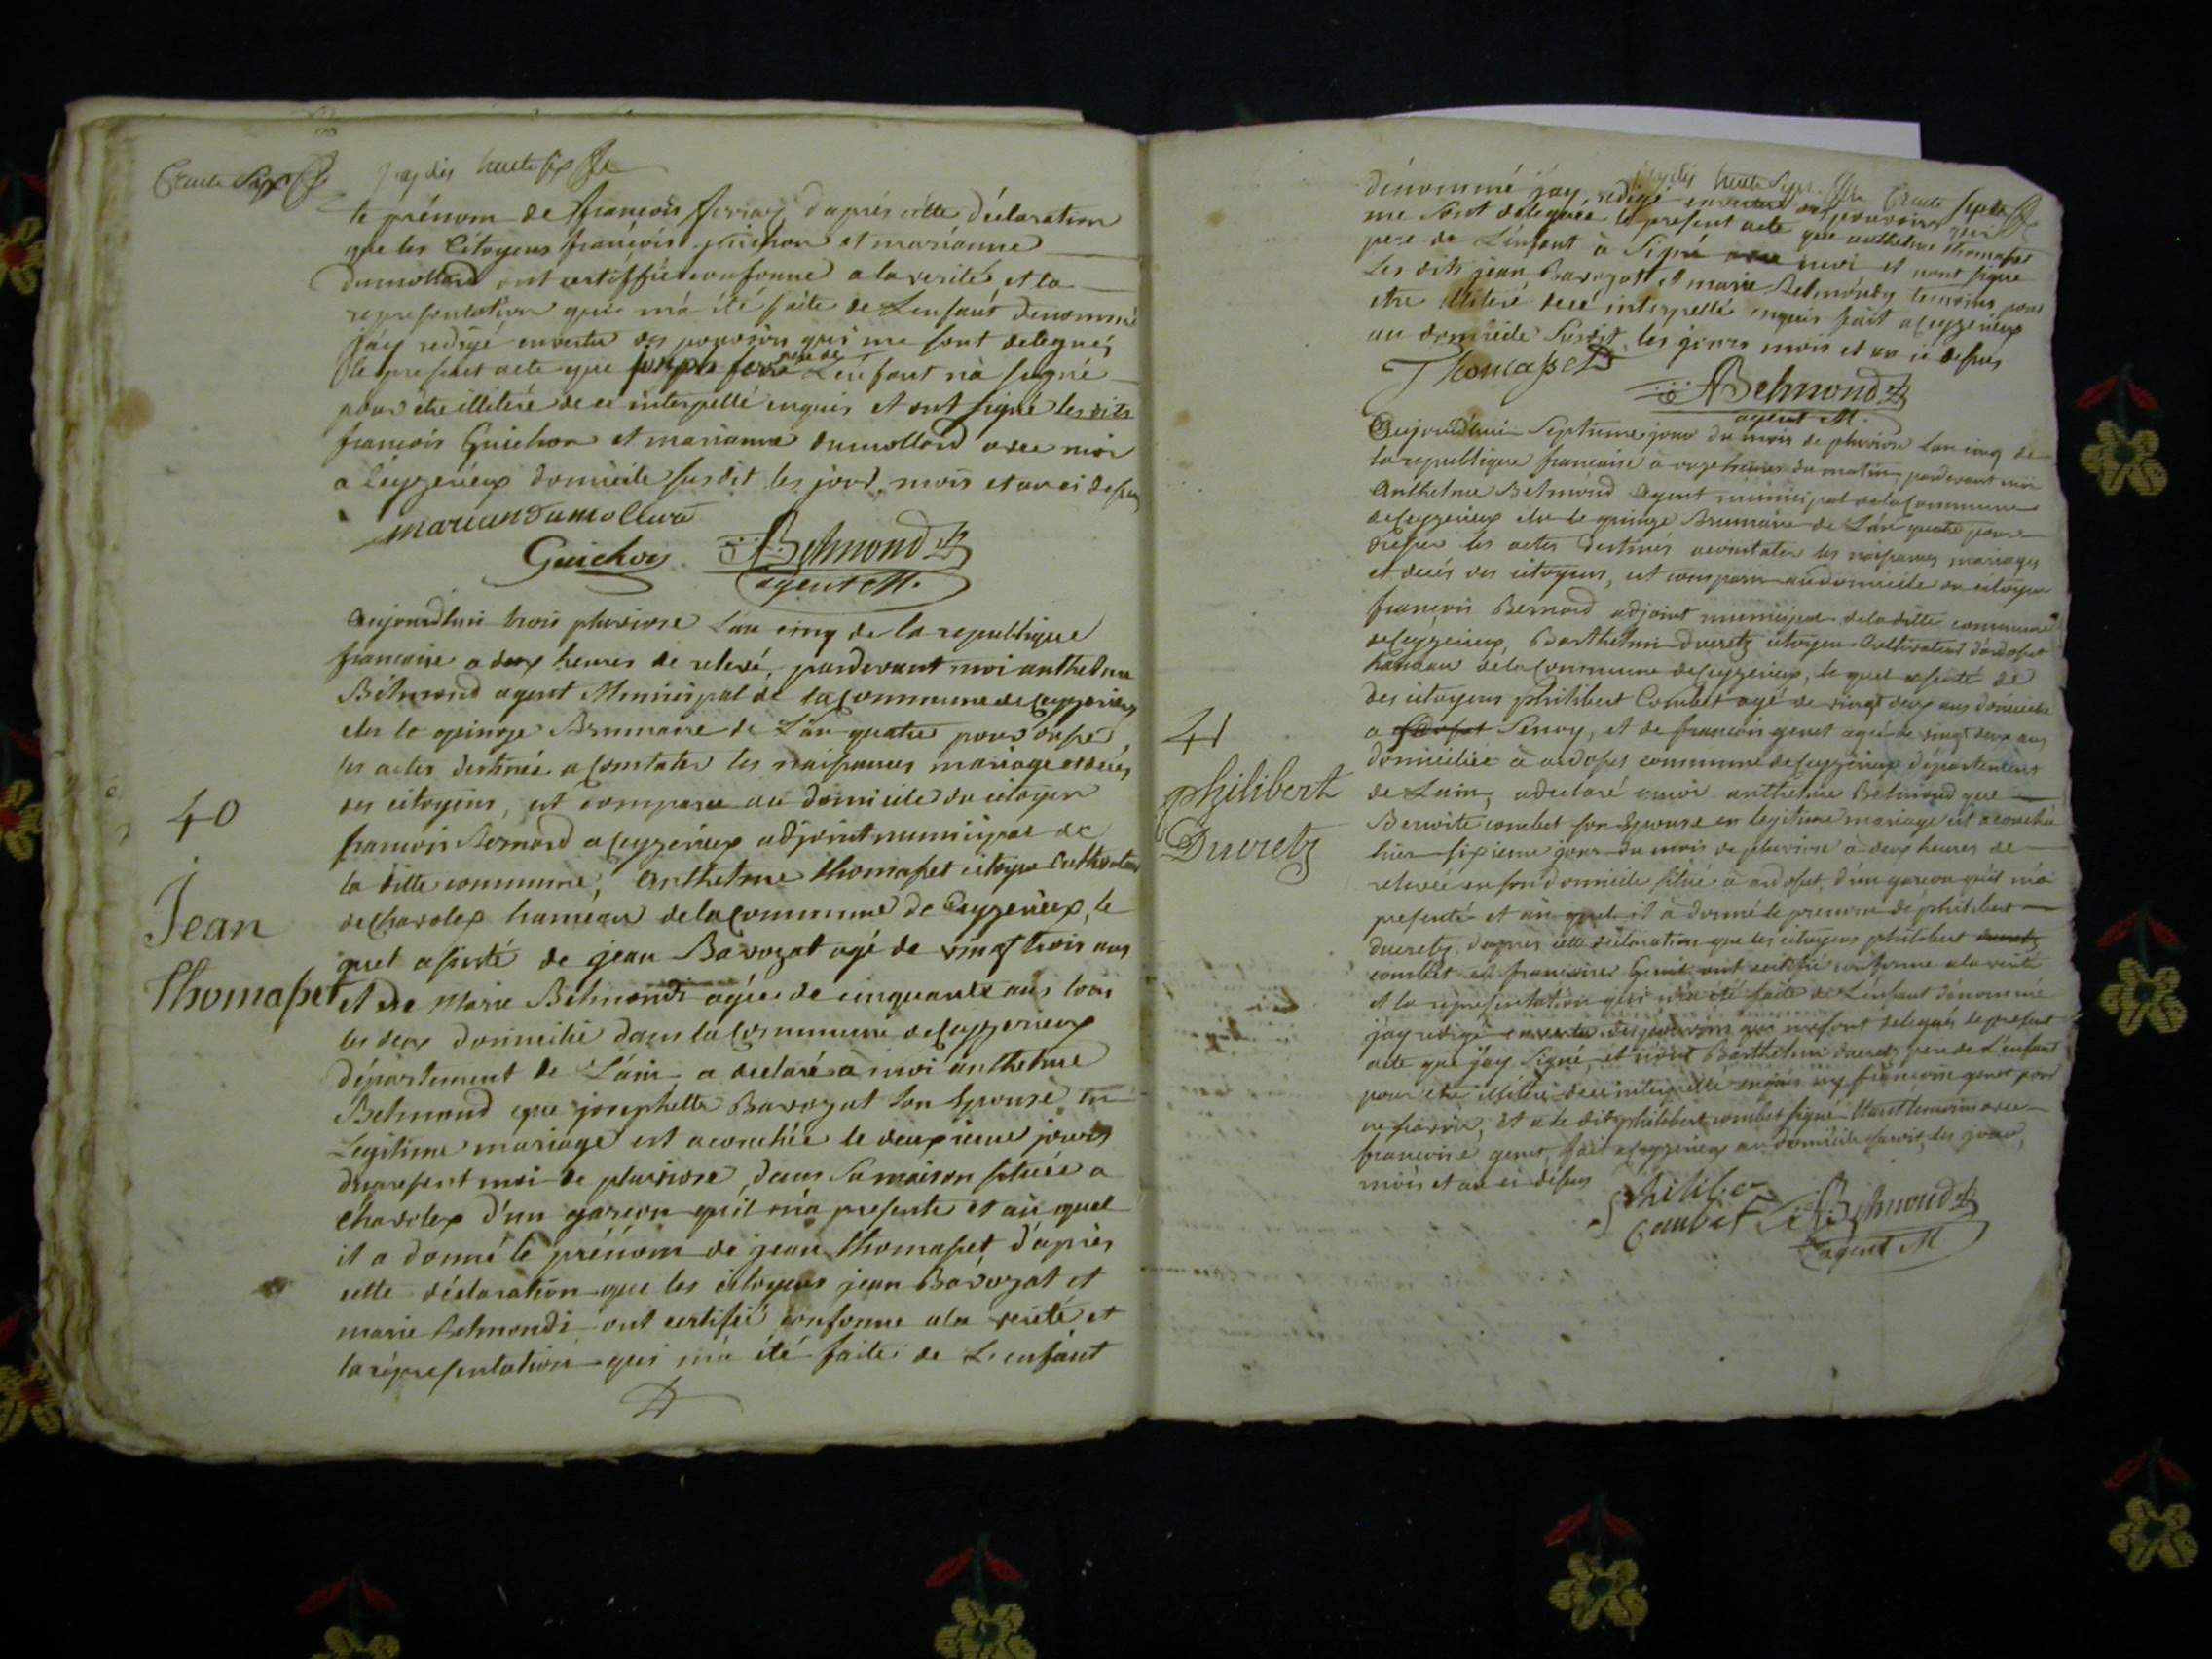 trente six
pag dix huite six
le prénom de françois ferraz d'après cette déclaration
que les Citoyens françois guichon et marianne
dumollard ont certiffié conforme a la verité, et la
representation qui m'a été faite de L'enfant denommé
j'ay redigé en vertu des pouvoirs qui me sont delegués
le present acte que pere de L'enfant n'a signé
pour etre illiteré de ce interpellé enquis et ont signé les dits
françois Guichon et marianne dumollard avec moi
a Ceyzerieux domicile susdit les jour, mois et an ci dessus
marian dumollard
Guichon ABelmond
agent M.
40
Jean
Thomasset
aujourdhui trois pluviose L'an cinq de la republique
francaise a deux heures de relevé, pardevant moi anthelme
Bélmond agent Municipal de la Commune de Ceyzerieux
elu le quinze Brumaire de L'an quatre pour dresser
les actes destinés a Constater les naissances mariage et décés
des citoyens, est comparu au domicile du citoyen
francois Bernard a Ceyzerieux adjoint municipal de
la ditte commune, anthelme thomasset citoyen Cultivateur
de Charolex haméau de la Commune de Ceyzerieux, le
quel assisté de jean Bavozat agé de vingt trois ans
et de Marie Belmondi agée de cinquante ans tous
les deux domicilié dans la Commune de Ceyzerieux
département de L'ain a declaré a moi anthelme
Belmond que josephette Bavozat son Epouse en
Legitime mariage est acouchée le deuxieme jour
du present moi de pluviose, dans sa maison située a
Charolex d'un garcon qu'il m'a presenté et au quel
il a donné le prénom de jean thomasset d'après
cette déclaration que les citoyens jean Bavozat et
marie Belmondi ont certifié conforme a la verité et
la répresentation qui m'a été faite de L'enfant
trente sept
dénommé j'ay redigé en vertu des pouvoirs qui
me sont delegués le present acte que anthelme thomasset
pere de L'enfant à Signé avec moi et nont signé
Les dits jean Bavozat et marie Belmondy temoins pour
etre illiteré de ce interpellé enquis fait a Ceyzerieux
au domicile Susdit les jours mois et an ci dessus
Thomasset
ABelmond
agent M.
41
Philibert
Ducretz
Aujourdhui Septieme jour du mois de pluviose L'an cinq de
la republique francaise à onze heures du matin, pardevant moi
Anthelme Belmond Agent municipal de la Commune
de Ceyzerieux elu le quinze Brumaire de L'an quatre pour
dresser les actes destinés a constater les naissances mariages
et decés des citoyens, est comparu au domicile du citoyen
françois Bernard adjoint municipal de la ditte commune
de Ceyzerieux, Barthelmi Ducretz citoyen Cultivateur d'ardosset
hameau de la Commune de Ceyzerieux, le quel assisté de
des citoyens philibert Combet agé de vingt deux ans domicilié
a Senoy, et de francois genet agé de vingt deux ans
domiciliée à ardosset commune de Ceyzerieux departement
de Lain, a declaré a moi anthelme Belmond que
Benoite combet son Epouse en legitime mariage est acouchée
hier sixieme jour du mois de pluviose à deux heures de
relevée en son domicile situé à ardosset, d'un garcon qu'il m'a
presenté et au quel il a donné le prenom de philibert
Ducretz, d'apres cette déclaration que les citoyens philibert ducretz
combet et francoise Genet ont certifié conforme a la verité
et la representation qui m'a été faite de L'enfant dénommé
jay redigé en vertu des pouvoirs qui me sont delegués le present
acte que j'ay Signé, et non Barthelmi ducretz pere de L'enfant
pour etre illiteré de ce interpellé enquis ny francoise genet pour
ne savoir, et a le dit philibert combet signé
francoise genet, fait a Ceyzerieux au domicile susdit, les jour,
mois et an ci dessus
Philiber
Canbet ABelmond
agent M